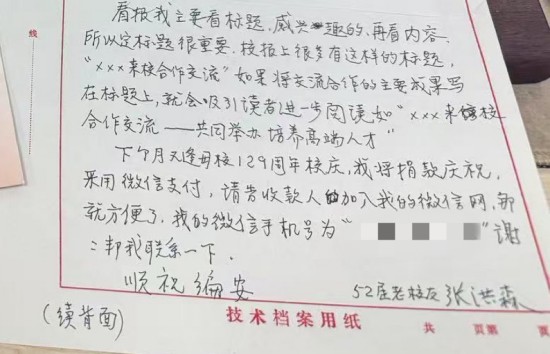 看报我主要看标题,感兴趣的,再看内容.
所以定标题很重要.校报上很多有这样的标题,
"×××来校合作交流"如果将交流合作的主要成果写
在标题上,就会吸引读者进一步阅读如"×××来校
合作交流——共同举办培养高端人才"
下个月又逢母校129周年校庆,我将捐款庆祝,
采用微信支付,请告收款人加入我的微信网,那
就方便了,我的微信手机号为" "谢
二帮我联系一下.
顺祝编安
52届老校友张洪森
(续背面)
技术档案用纸 共 页第 页
线